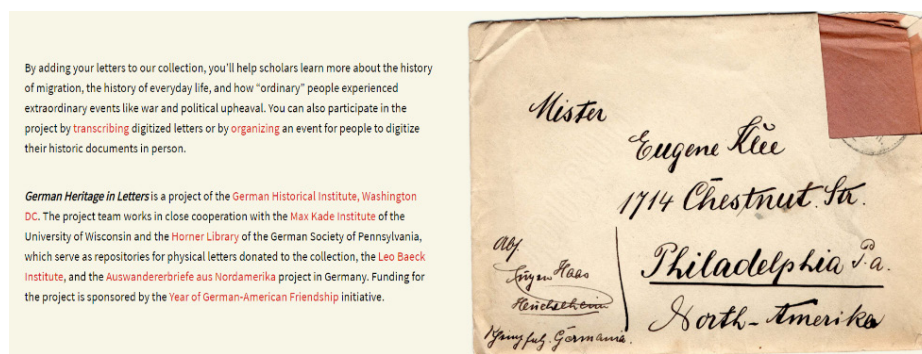 By adding your letters to our collection, you'll help scholars learn more about the history
of migration, the history of everyday life, and how “ordinary” people experienced
extraordinary events like war and political upheaval. You can also participate in the
project by transcribing digitized letters or by organizing an event for people to digitize
their historic documents in person.
German Heritage in Letters is a project of the German Historical Institute, Washington
DC. The project team works in close cooperation with the Max Kade Institute of the
University of Wisconsin and the Horner Library of the German Society of Pennsylvania,
which serve as repositories for physical letters donated to the collection, the Leo Baeck
Institute, and the Auswandererbriefe aus Nordamerika project in Germany. Funding for
the project is sponsored by the Year of German-American Friendship initiative.
Mister
Eugene Klee
1714 Chestnut. Str.
Philadelphia P.a.
North-Amerika
Abs.
Eugen Haas
Heuchelheim
Germania.